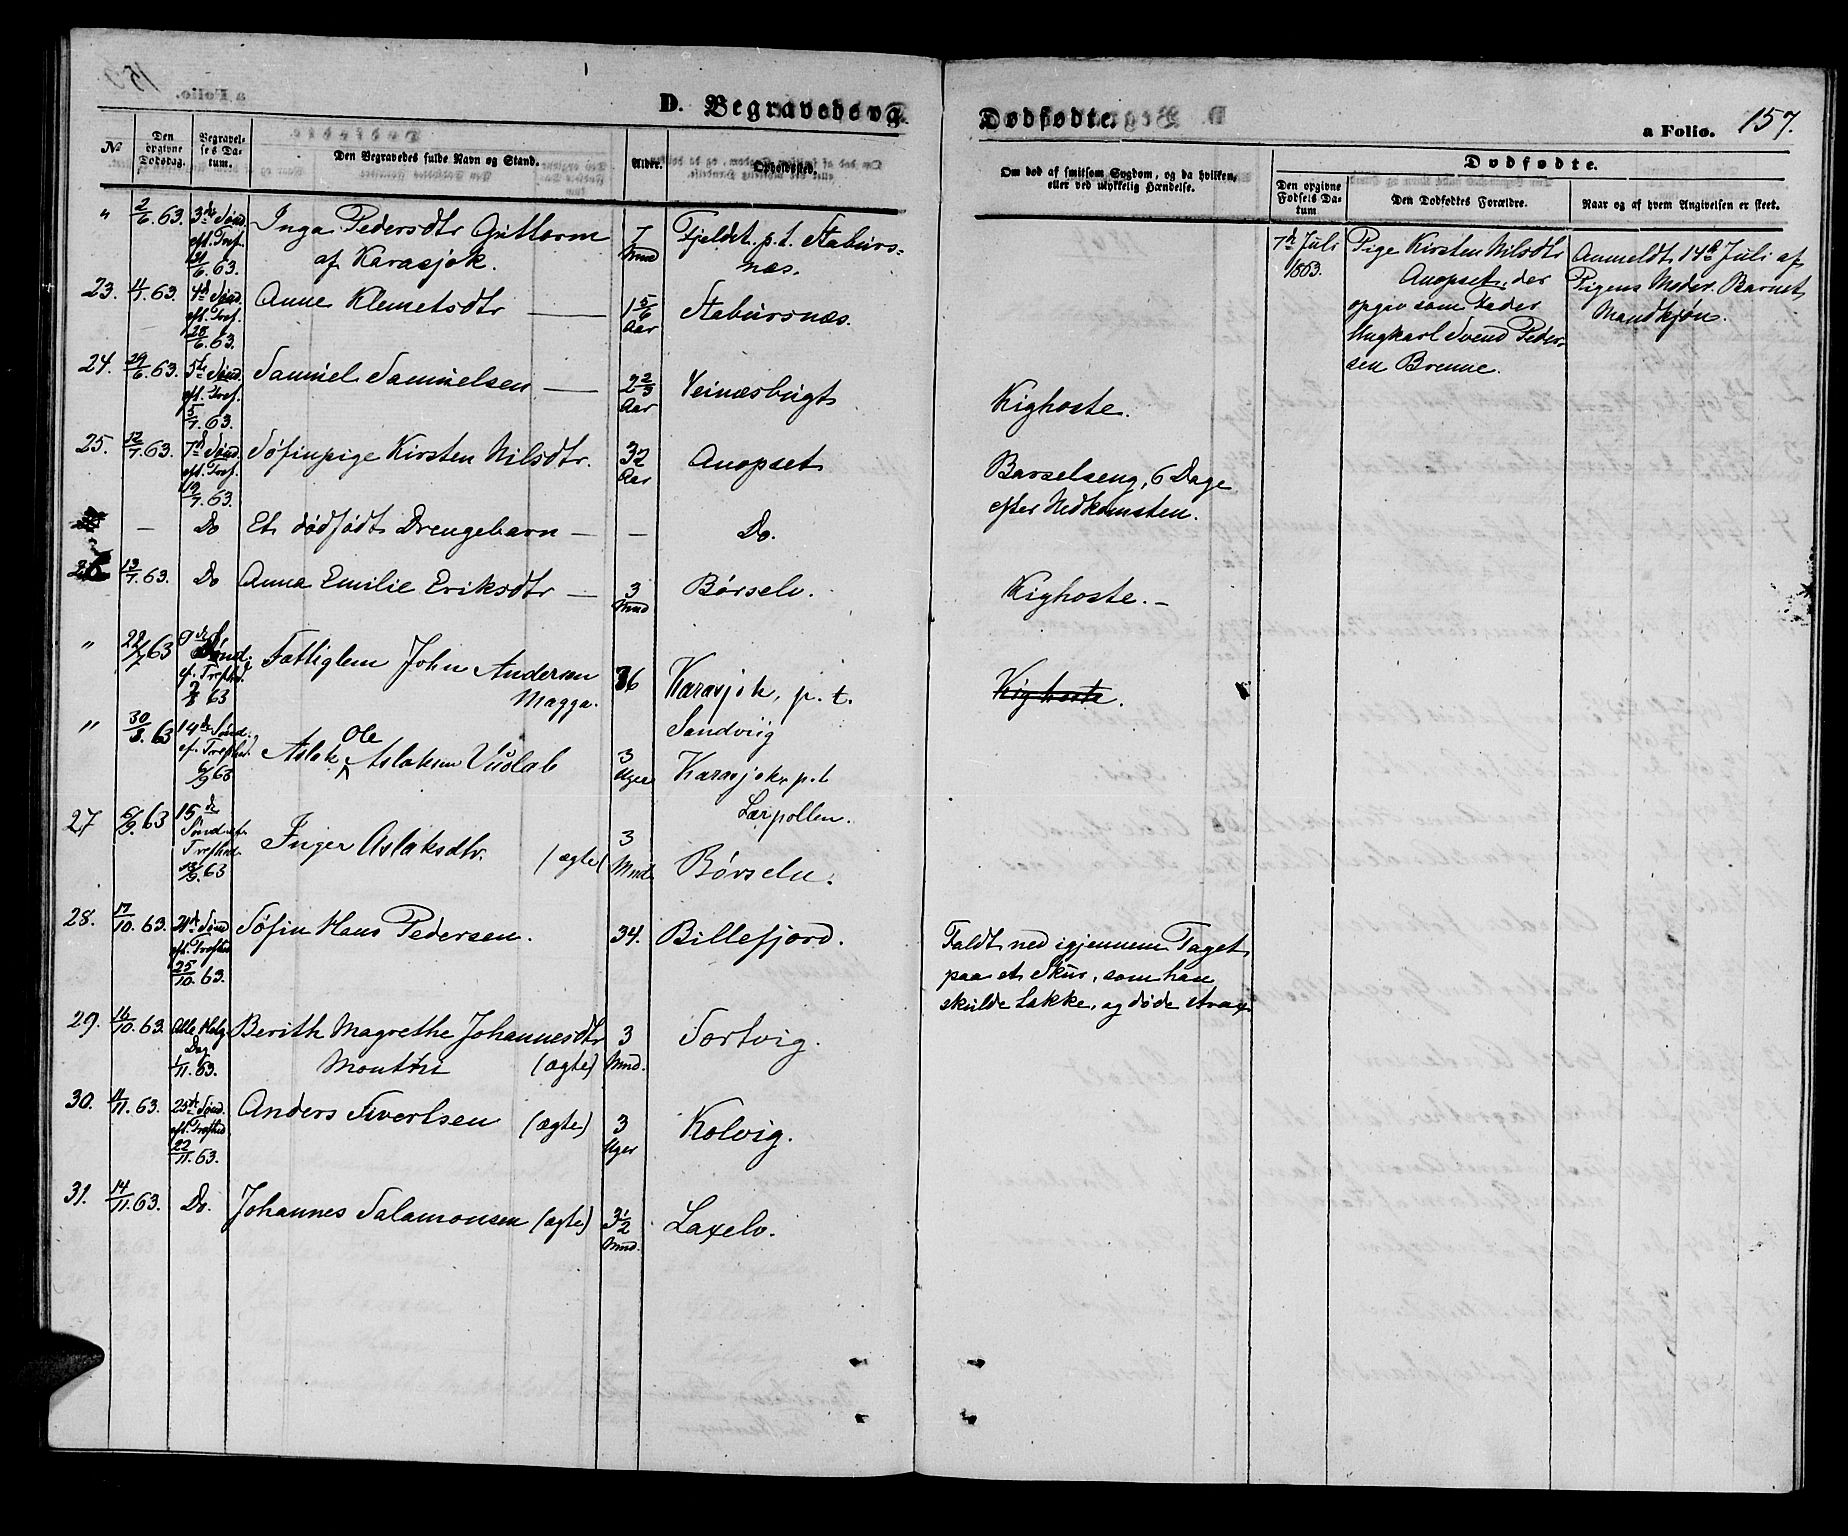 D. Begravede og Dødfødte.
a Folio. 157.
№
Den opgivne Dødsdag.
Begravelses Datum.
Den Begravedes fulde Navn og Stand.
Alder.
Opholdssted.
Om død af smitsom Sygdom, og da hvilken, eller ved ulykkelig Hændelse.
Dødfødte.
Den opgivne Fødsels Datum
Den Dødfødtes Forældre.
Naar og af hvem Angivelsen er skeet.
" 2/6.63. 3de Sønd. eft. Tref. 21/6.63. Inga Pedersdtr Guttorm 7 Mnd Fjeldet. p.t. Stabursnæs.
af Karasjok.
7de Juli 1863.
Pige Kirsten Nilsdtr
Anopset, der
opgav som Fader
Ungkarl Svend Pedersen Brenne.
Anmeldt 14de Juli af
Pigens Moder. Barnet
Mandkjøn.
23. 63. 4de Sønd. eft. Tref. 28/6.63. Anne Klemetsdtr — 1 5/6 Aar Stabursnæs.
24. 29/6.63. 5te Sønd. eft. Tref. 5/7.63. Samuel Samuelsen — 2 2/3 Aar Veinæsbugt Kighoste.
25. 12/7.63. 7de Sønd. eft. Tref. 19/7.63. Søfinpige Kirsten Nilsdtr. 32 Aar Anopset Barselseng, 6 Dage
efter Nedkomsten.
— Do Et dødfødt Drengebarn — — Do.
26 13/7.63. Do Anna Emilie Eriksdtr — 3 Mnd Børselv. Kighoste. —
" 22/7 63 9de Sønd. ef. Trefhd. 2/8 63 Fattiglem John Andersen 76 Karasjok, p.t.
Magga. Sandvig
Kighoste.
" 30/8.63 14de Sønd. ef. Trefhd. 6/9 63 Aslak Ole Aslaksen Vuolab 3 Uger Karasjok, p.t
Lærpollen.
27 6/9.63 15de Sønd. ef. Trefhd. 13/9.63 Inger Aslaksdtr. (ægte) 3 Mnd. Børselv.
28. 17/10.63. 21de Sønd. eft. Trefhd 25/10.63. Søfin Hans Pedersen. 34. Billefjord. Faldt ned igjennem Taget
paa et Skur, som han
skulde tække, og døde strax.
29. 16/10.63. Alle Helg. Dag 1/11.63. Berith Magrethe Johannesdtr 3 Mnd. Sortvig.
(ægte)
30. 11/11.63. 25de Sønd. eft. Trefhd. 22/11.63. Anders Sivertsen (ægte) 3 Uger Kolvig.
31. 14/11.63. Do. Johannes Salamonsen (ægte) 3 1/2 Mnd. Laxelv.